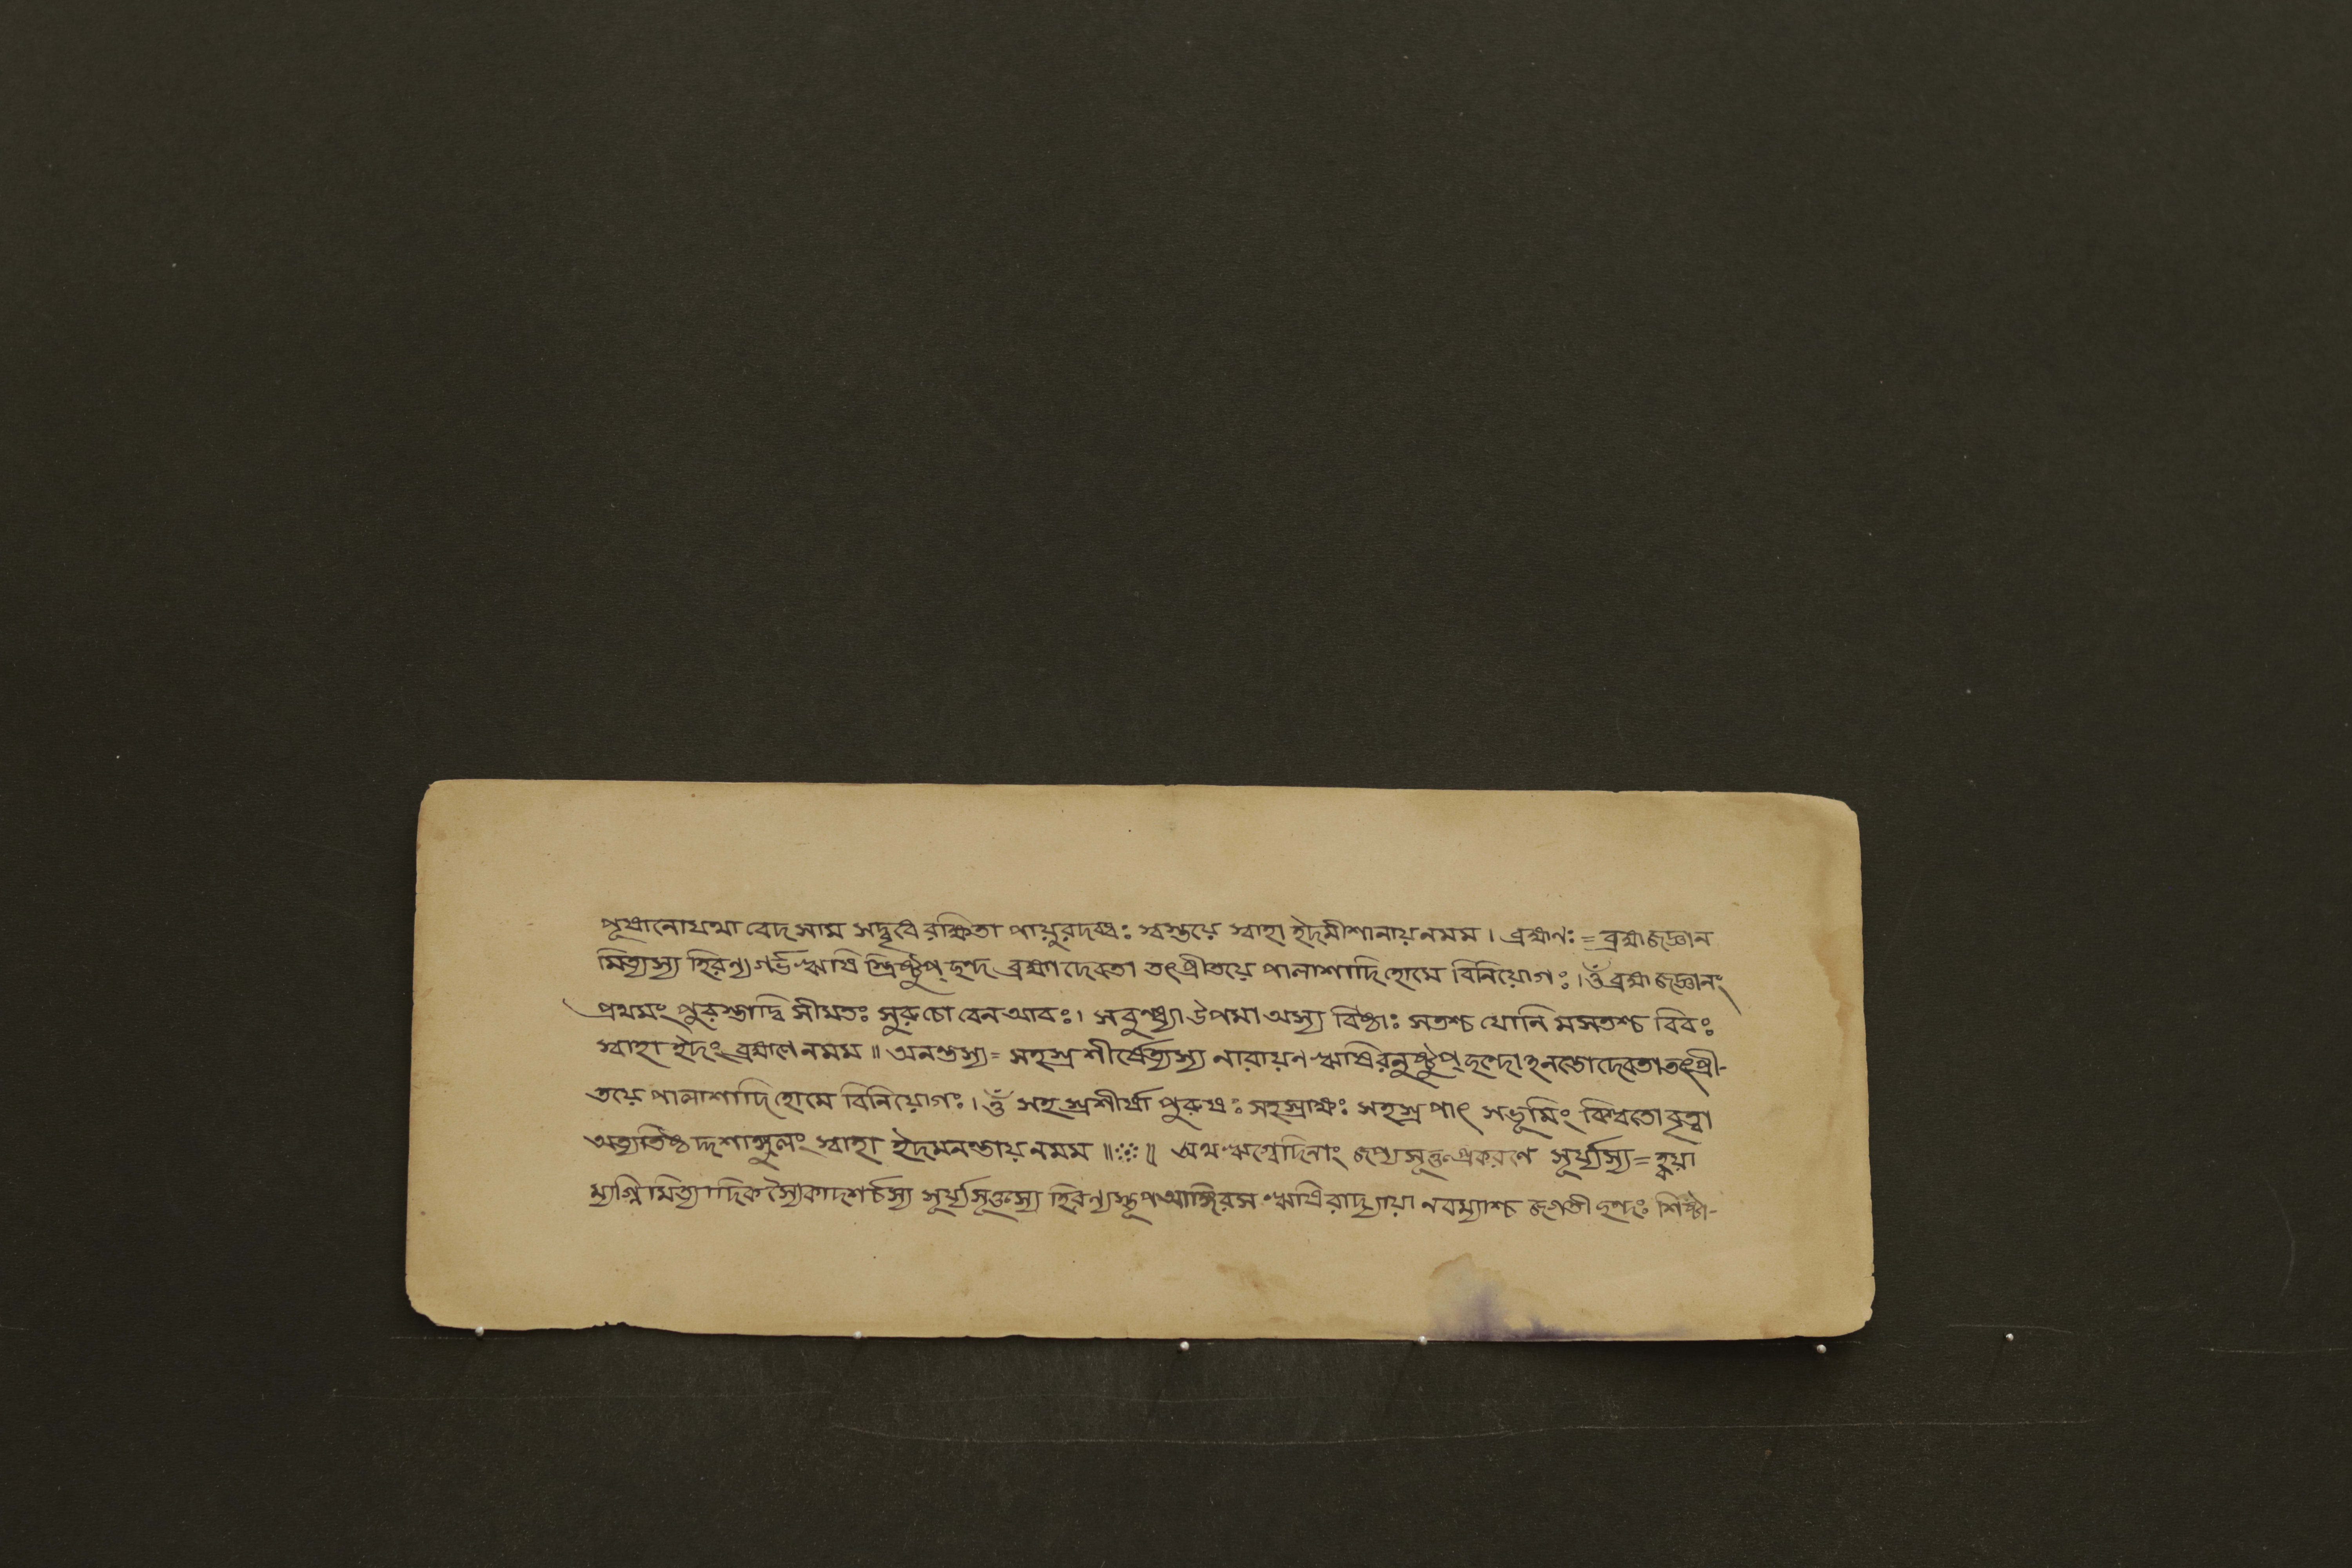 পূষানোযথা বেদ সাম সদ্বৃধে রক্ষিতা পায়ুরদব্ধঃ স্বস্তয়ে স্বাহা ইদমীশানায় নমম । ব্রহ্মণঃ = ব্রহ্মজজ্ঞান
মিত্যস্য হিরণ্যগর্ভ ঋষি স্ত্রিষ্টুপ্ ছন্দ ব্রহ্মা দেবতা তৎপ্রীতয়ে পালাশাদি হোমে বিনিয়োগঃ । ওঁ ব্রহ্মজজ্ঞানং
প্রথমং পুরস্তাদ্বি সীমতঃ সুরুচো বেন আবঃ । সবুধ্ন্যা উপমা অস্য বিষ্ঠাঃ সতশ্চ যোনি মসতশ্চ বিবঃ
স্বাহা ইদং ব্রহ্মণে নমম ॥ অনন্তস্য = সহস্র শীর্ষেত্যস্য নারায়ণ ঋষিরনুষ্টুপ্ ছন্দোঽনন্তো দেবতা তৎপ্রী-
তয়ে পালাশাদি হোমে বিনিয়োগঃ । ওঁ সহস্রশীর্ষা পুরুষঃ সহস্রাক্ষঃ সহস্রপাৎ সভূমিং বিশ্বতো বৃত্বা
অত্যতিষ্ঠ দ্দশাঙ্গুলং স্বাহা ইদমনন্তায় নমম ॥ ॥ অথ ঋগ্বেদিনাং জপ্যসূক্ত প্রকরণে সূর্য্যস্য = হ্বয়া
ম্যগ্নি মিত্যাদিক স্যৈকাদশর্চস্য সূর্য্যসূক্তস্য হিরণ্যস্তূপ আঙ্গিরস ঋষিরাদ্যায়া নবম্যাশ্চ জগতী ছন্দঃ শিষ্টা-